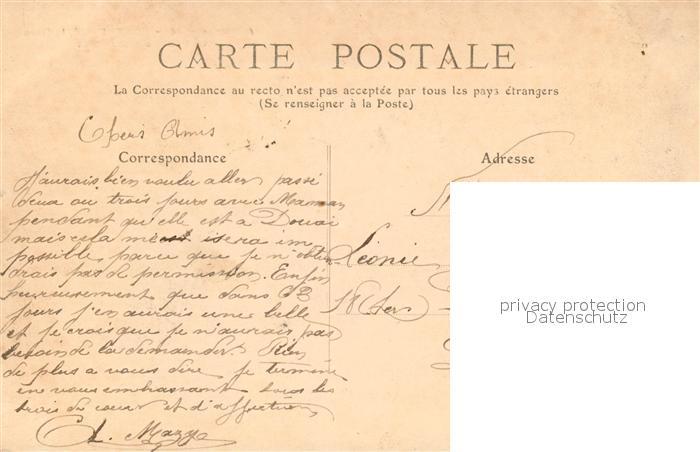 CARTE POSTALE
La Correspondance au recto n'est pas acceptée par tous les pays étrangers
(Se renseigner à la Poste)
Chers Amis
Correspondance
J'aurais bien voulu aller passé
deux ou trois jours avec Maman
pendant qu'elle est a Douai
mais cela isera im
possible parce que je n'obtien
drais pas de permission. Enfin
heureusement que dans
jours j'en aurais une belle
et je crois que je n'aurais pas
besoin de la demander. Rien
de plus a vous dire je termine
en vous embrassant tous les
trois de cœur et d'affection
Adresse
Léonie
18
privacy protection
Datenschutz